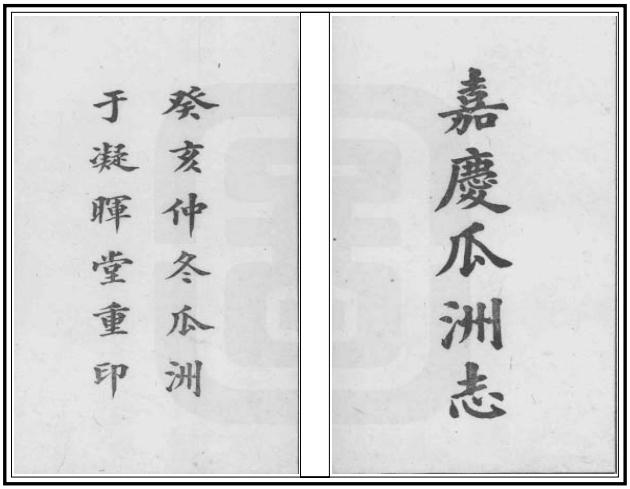 嘉慶瓜洲志
癸亥仲冬瓜洲
于凝暉堂重印